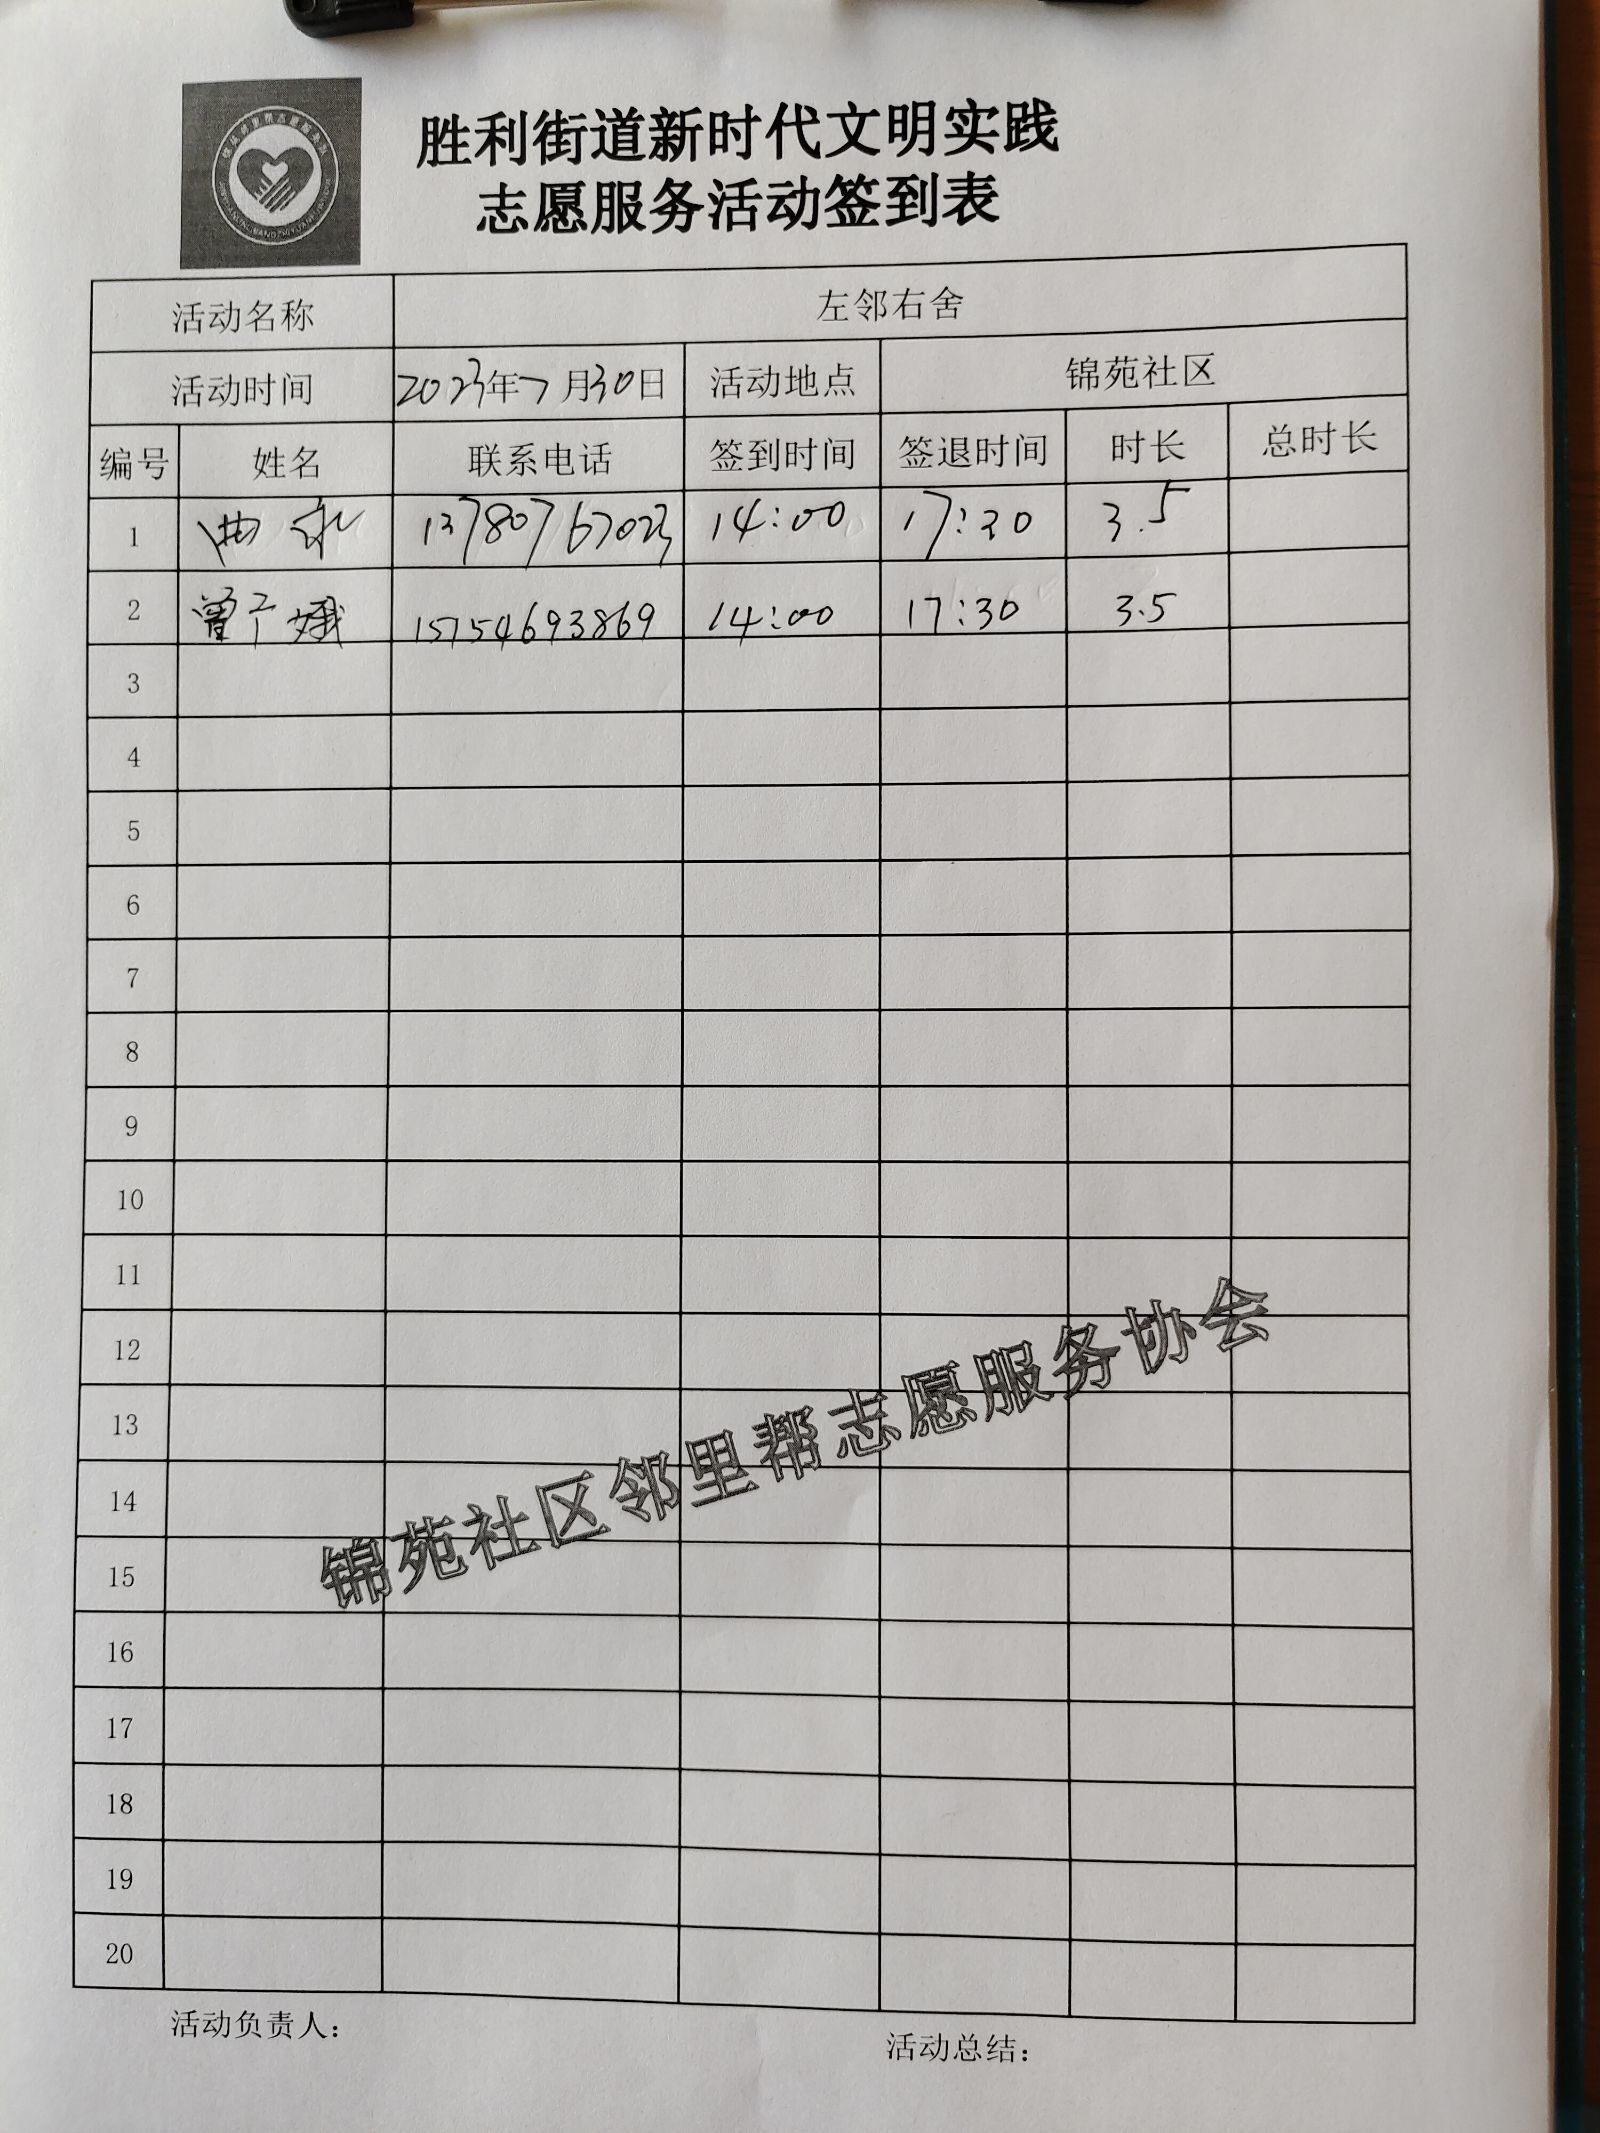 胜利街道新时代文明实践
志愿服务活动签到表
活动名称 左邻右舍
活动时间 2023年7月30日 活动地点 锦苑社区
编号 姓名 联系电话 签到时间 签退时间 时长 总时长
1 曲永 13780767023 14:00 17:30 3.5
2 曾子娥 15754693869 14:00 17:30 3.5
3
4
5
6
7
8
9
10
11
12
13
14
15
16
17
18
19
20
锦苑社区邻里帮志愿服务协会
活动负责人：
活动总结：